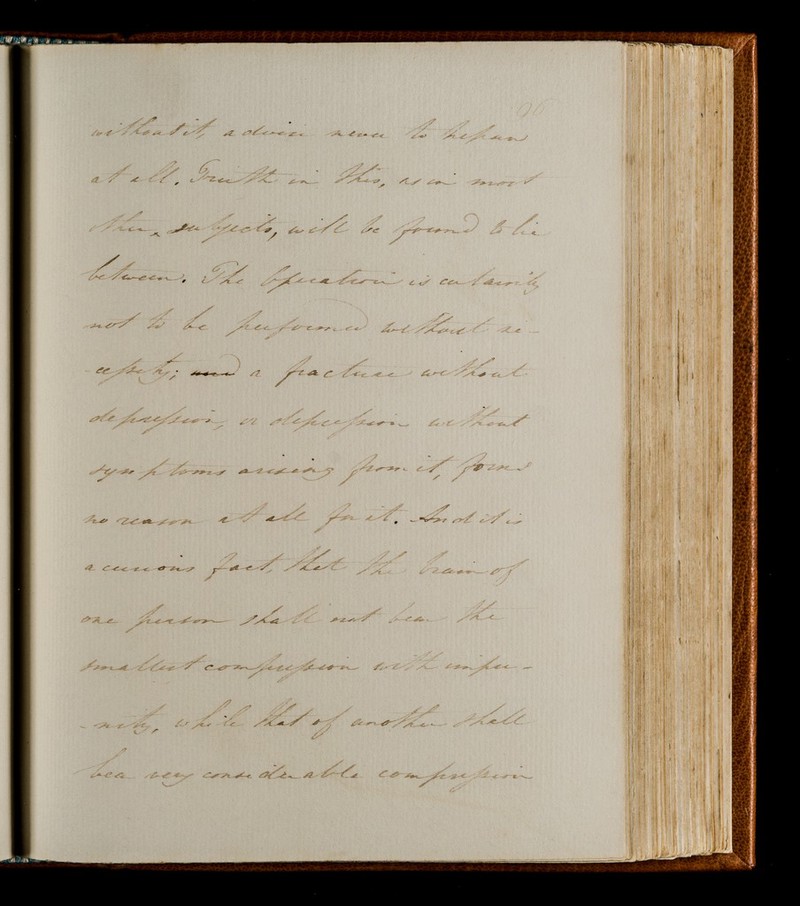 96
without it, advise never to trepan
at all. Truth in this, as in most
other, subjects, will be found to lie
between. The Operation is certainly
not to be performed without ne-
-cessity; and a fracture without
depression, or depression without
symptoms arising from it, forms
no reason at all for it. And it is
a curious fact, that the brain of
one person shall not bear the
smallest compression with impu-
-nity, while that of another shall
bear very considerable compression